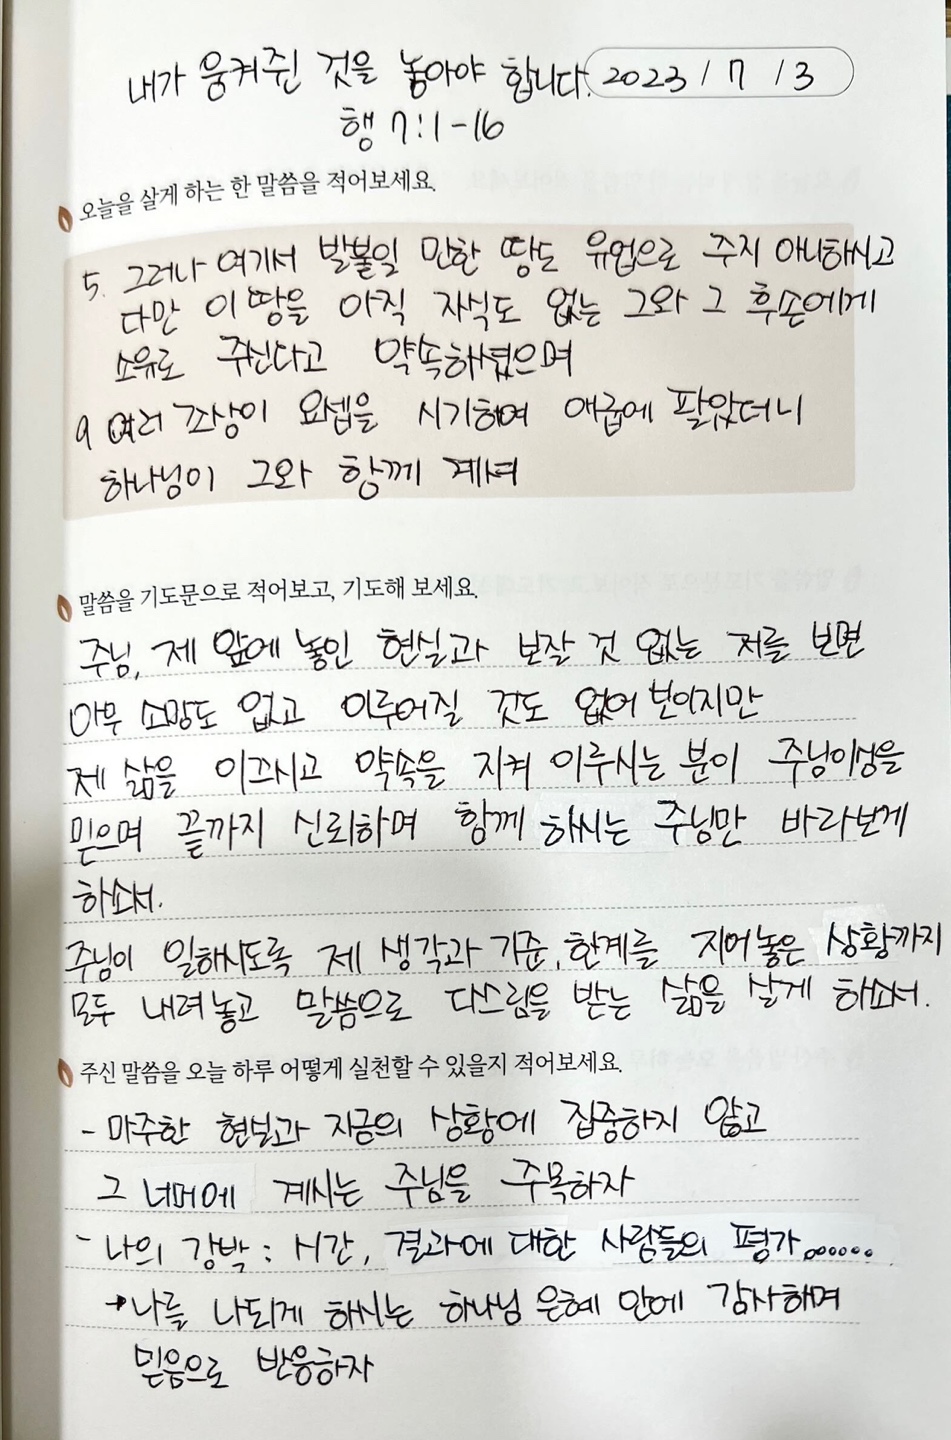 내가 움켜쥔 것을 놓아야 합니다. 2023 / 7 / 3
행 7:1-16
오늘을 살게 하는 한 말씀을 적어보세요.
5. 그러나 여기서 발붙일 만한 땅도 유업으로 주지 아니하시고
다만 이 땅을 아직 자식도 없는 그와 그 후손에게
소유로 주신다고 약속하셨으며
9 여러 조상이 요셉을 시기하여 애굽에 팔았더니
하나님이 그와 함께 계셔
말씀을 기도문으로 적어보고, 기도해 보세요.
주님, 제 앞에 놓인 현실과 보잘 것 없는 저를 보면
아무 소망도 없고 이루어질 것도 없어 보이지만
제 삶을 이끄시고 약속을 지켜 이루시는 분이 주님이심을
믿으며 끝까지 신뢰하며 함께 하시는 주님만 바라보게
하소서.
주님이 일하시도록 제 생각과 기준, 한계를 지어놓은 상황까지
모두 내려놓고 말씀으로 다스림을 받는 삶을 살게 하소서.
주신 말씀을 오늘 하루 어떻게 실천할 수 있을지 적어보세요.
- 마주한 현실과 지금의 상황에 집중하지 않고
그 너머에 계시는 주님을 주목하자
- 나의 강박 : 시간, 결과에 대한 사람들의 평가......
→ 나를 나되게 하시는 하나님 은혜 안에 감사하며
믿음으로 반응하자